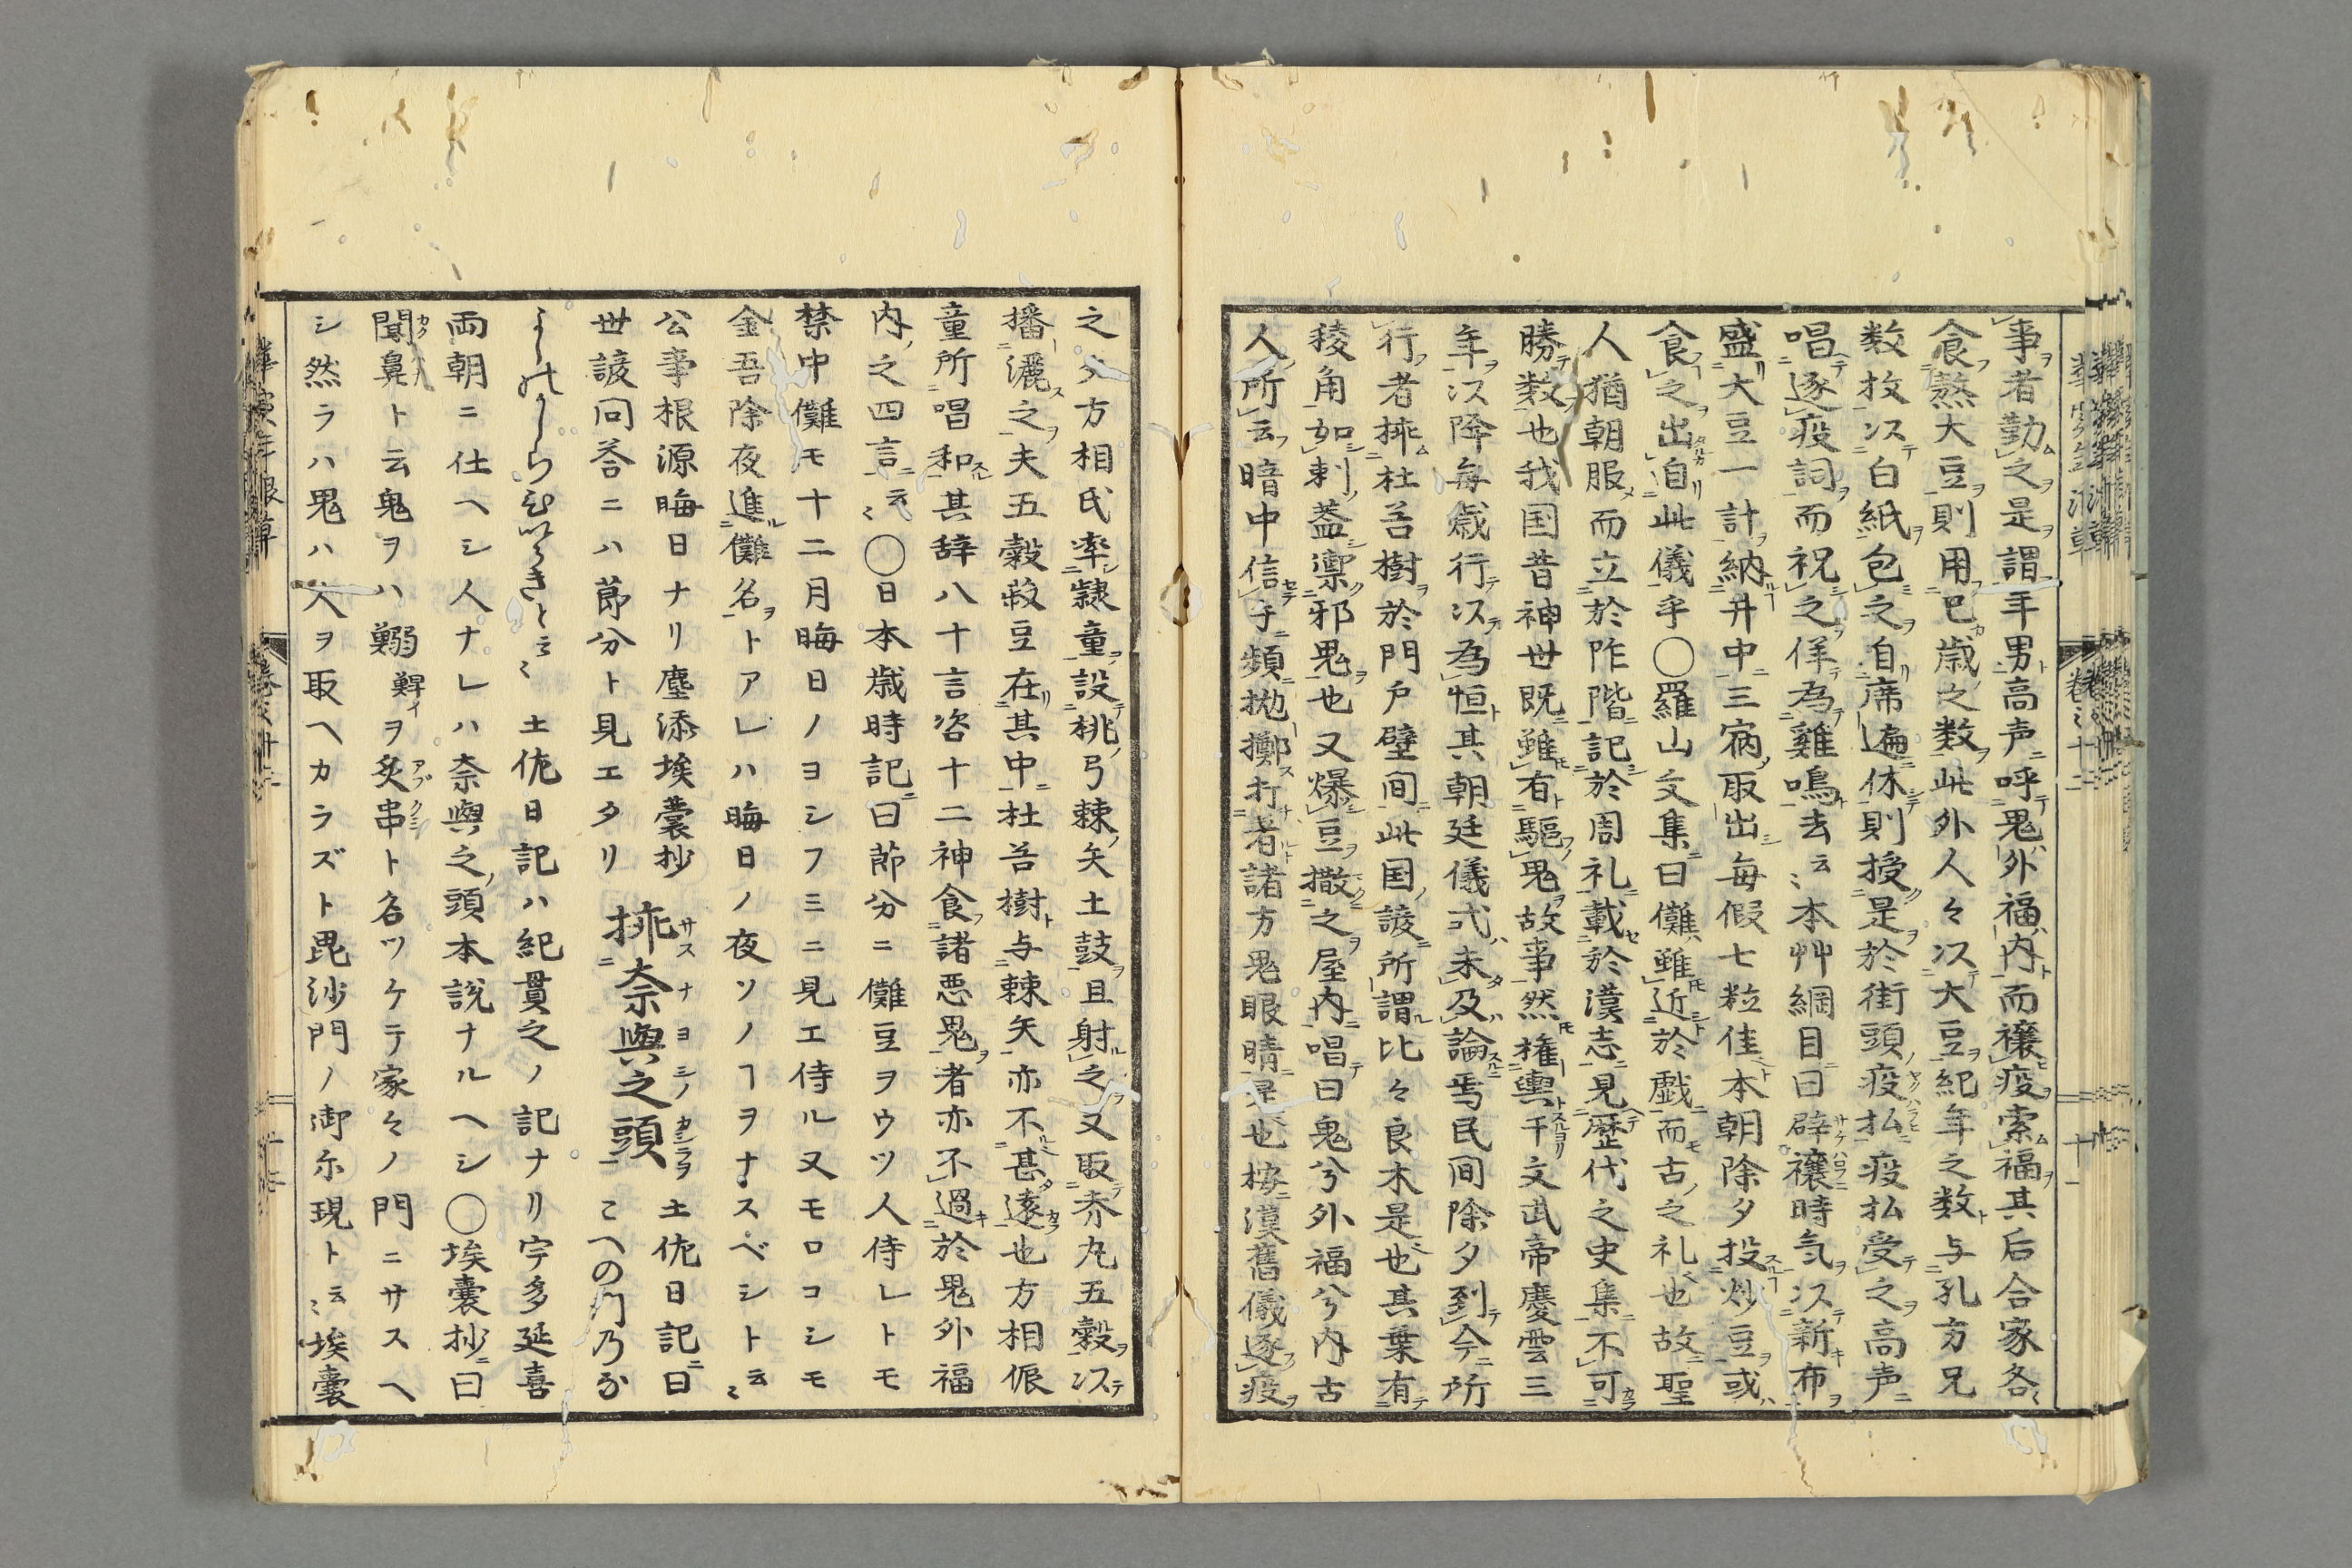 事者勤之是謂年男高声呼鬼外福内而禳疫索福其后合家各〻
食煞大豆則用已歳之数此外人々以大豆紀年之数与孔方兄
数枚以白紙包之自席遍休則授是於街頭疫払疫払受之高声
唱逐疫詞而祝之佯為雞鳴去云〻本艸綱目曰辟禳時気以新布
盛大豆一計納井中三宿取出毎假七粒佳本朝除夕投炒豆或
食之出自此儀乎〇羅山文集曰儺雖近於戯而古之礼也故聖
人猶朝服而立於阼階記於周礼載於漢志見歴代之史集不可
勝数也我国昔神世既雖有駆鬼故事然権輿于文武帝慶雲三
年以降毎歳行以為恒其朝廷儀式未及論焉民間除夕到今所
行者挑杜谷樹於門戸壁間此国諺所謂比々良木是也其葉有
稜角如刺蓋禦邪鬼也又爆豆撒之屋内唱曰鬼兮外福兮内古
人所云暗中信手頻抛擲打著諸方鬼眼睛是也按漢舊儀逐疫
之夕方相氏率隷童設桃弓棘矢土鼓且射之又取赤丸五穀以
播灑之夫五穀菽豆在其中杜谷樹与棘矢亦不甚遠也方相侲
童所唱和其辞八十言咨十二神食諸悪鬼者亦不過於鬼外福
内之四言云〻〇日本歳時記曰節分ニ儺豆ヲウツ人侍レトモ
禁中儺モ十二月晦日ノヨシフミニ見エ侍ル又モロコシモ
金吾除夜進儺名ヲトアレハ晦日ノ夜ソノヿヲナスベシト云〻
公事根源晦日ナリ塵添埃嚢抄
世諺問答ニハ節分ト見エタリ 挑奈與之頭 土佐日記曰
こへの門乃な
よしのかしらひいらきとミ〻 土佐日記ハ紀貫之ノ記ナリ宇多延喜
両朝ニ仕ヘシ人ナレハ奈與之頭本説ナルヘシ〇埃嚢抄曰
聞鼻ト云鬼ヲハ鰯ヲ炙串ト名ツケテ家々ノ門ニサスヘ
シ然ラハ鬼ハ人ヲ取ヘカラズト毘沙門ノ御示現ト云〻埃嚢